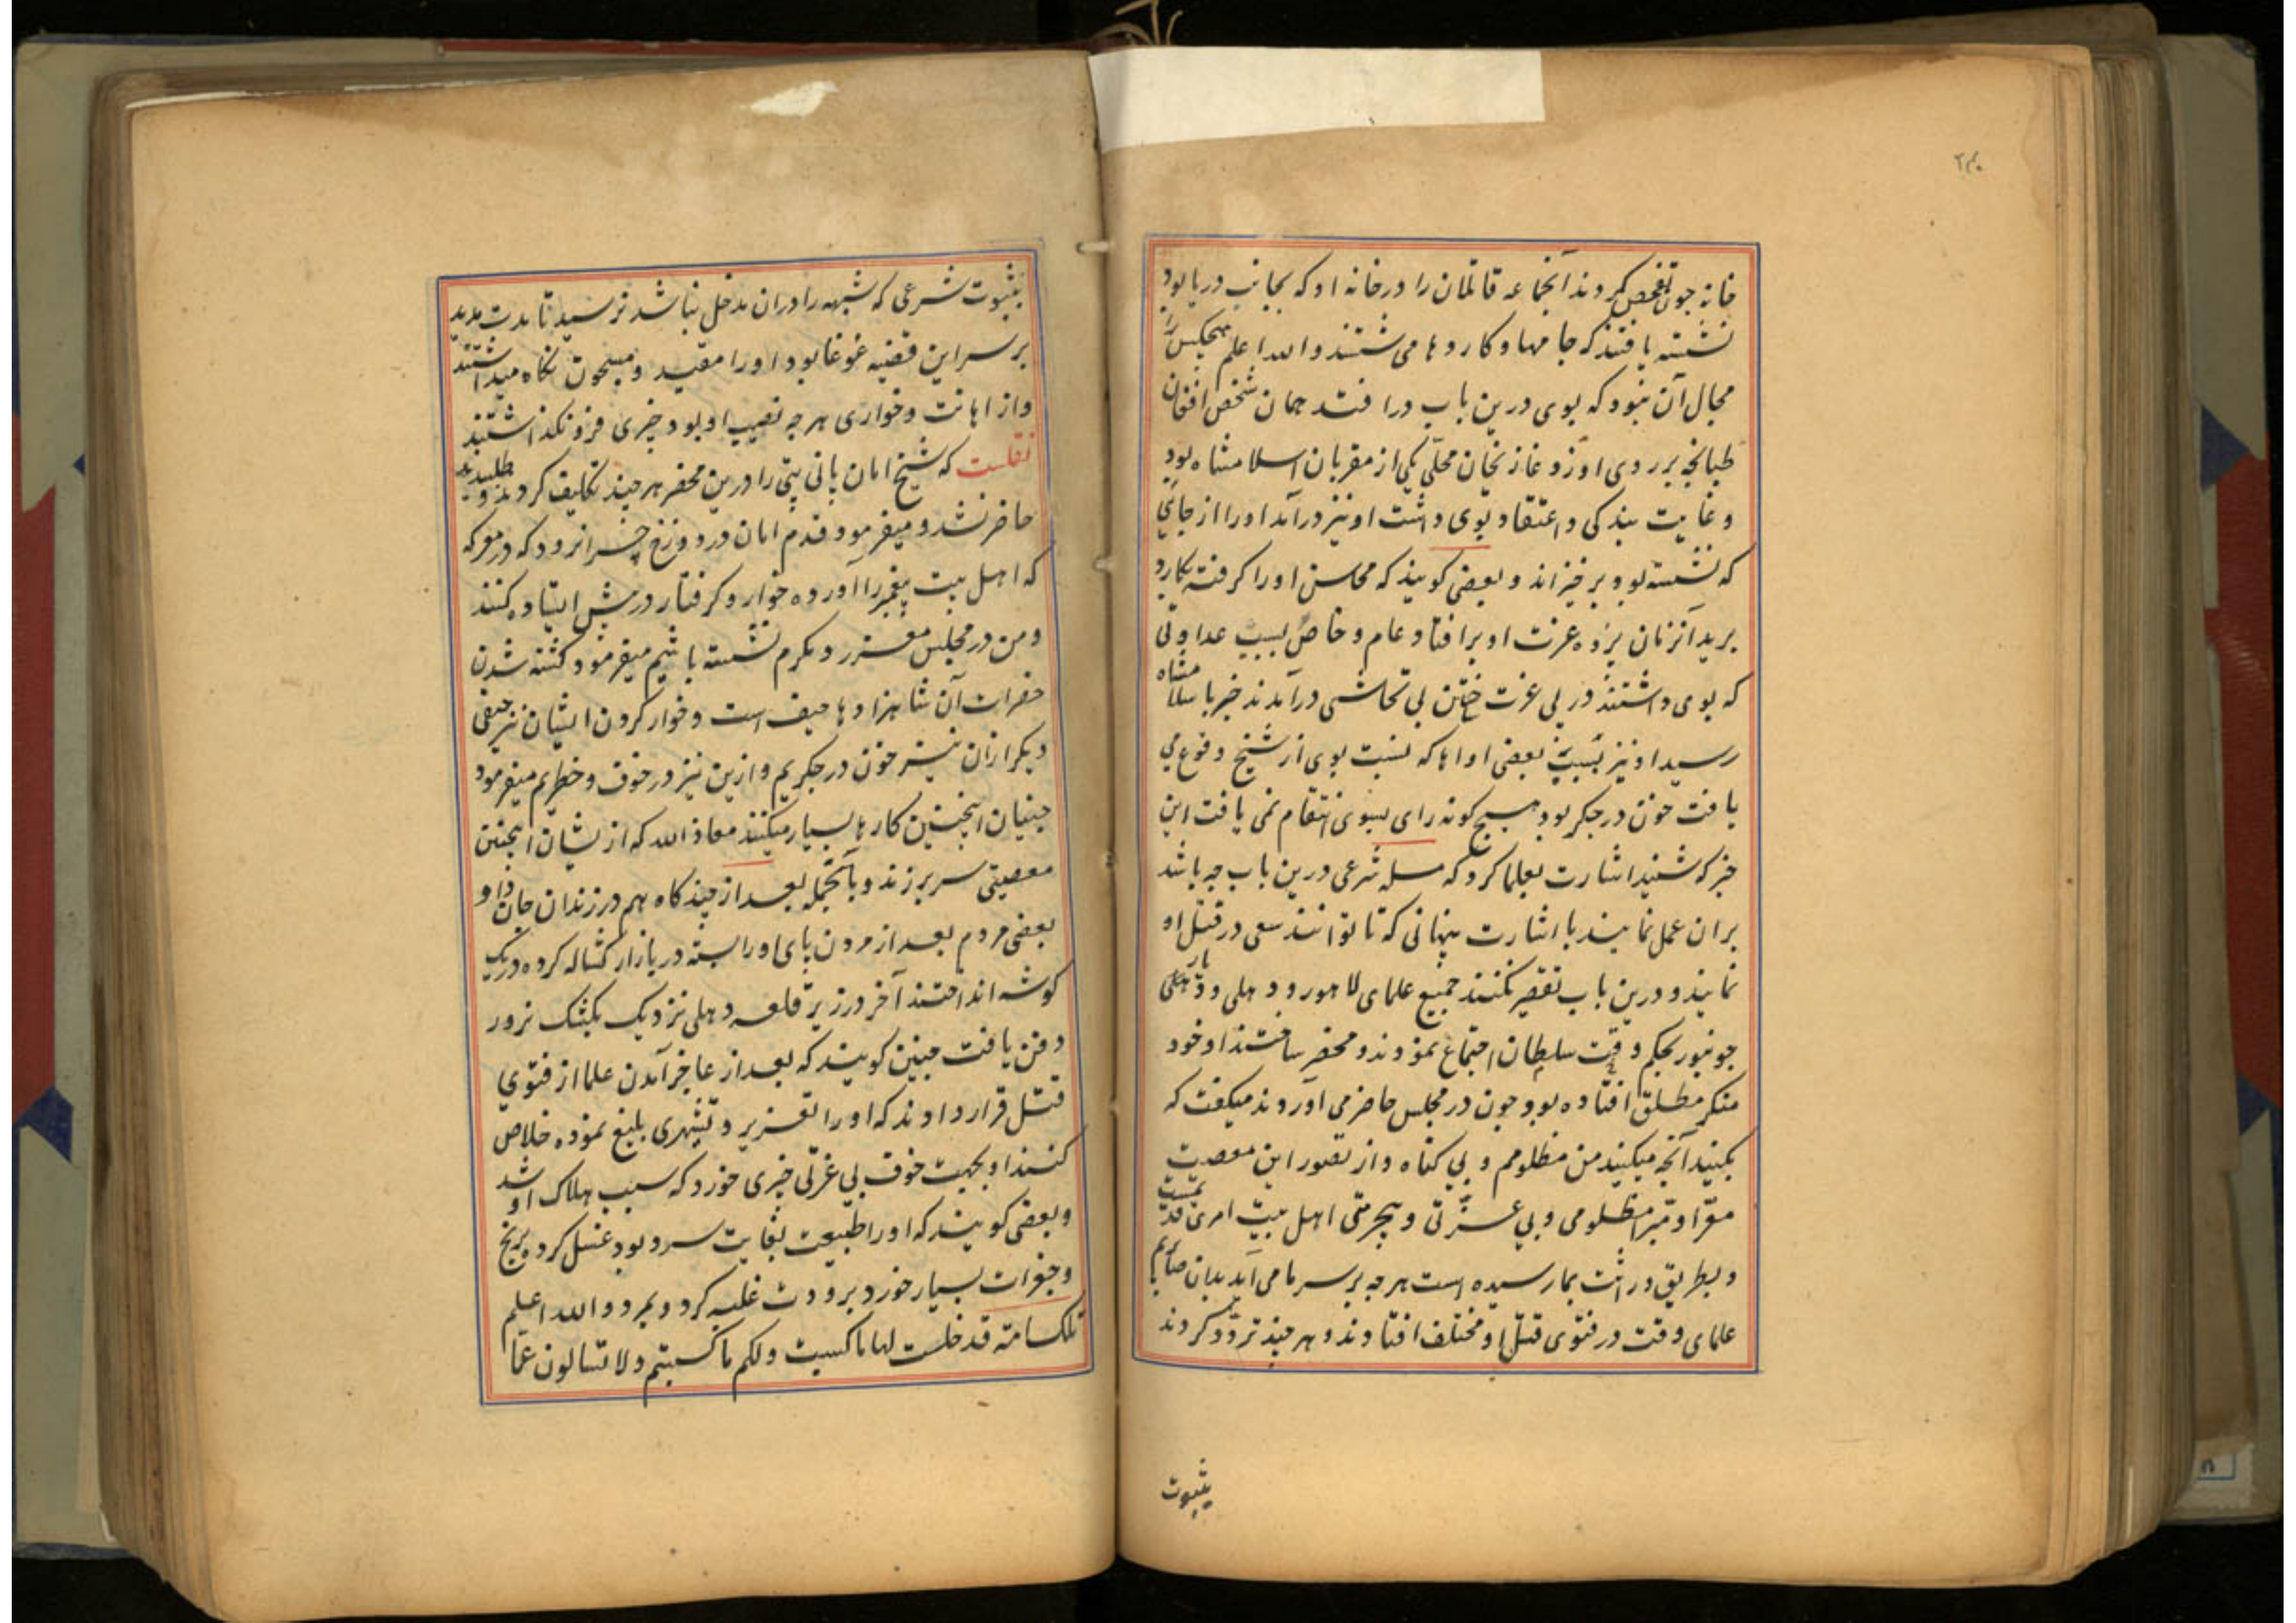 ۲۴۰
خانه چون تفحص کردند آنجماعه قاتلان را در خانه او که بجانب دریا بود
نشسته یافتند که جامها و کاردها می شستند والله اعلم هیچکس را
مجال آن نبود که بوی درین باب در افتد همان شخص افغان
طپانچه بر روی او زد و غازیخان محلّی یکی از مقربان اسلامشاه بود
و غایت بندکی و اعتقاد بوی داشت او نیز درآمد اورا از جائی
که نشسته بود بر خیزاند و بعضی کویند که محاسن اورا کرفته بکارد
برید ازان پرده عزت او بر افتاد و عام و خاص بسبب عداوتی
که بوی داشتند در بی عزت ختن بی تحاشی درآمدند خبر باسلامشاه
رسید او نیز بسبب بعضی اداها که نسبت بوی از شیخ وقوع می
یافت خون در جکر بود هیچ کونه رای بسوی انتقام نمی یافت این
خبر که شنید اشارت بعلما کرد که مسله شرعی درین باب چه باشد
بران عمل نمایند با اشارت پنهانی که تا توانند سعی در قتل او
نمایند و درین باب تقصیر نکنند جمیع علمای لاهور و دهلی و
جونپور بحکم وقت سلطان اجتماع نمودند و محضر ساختند او خود
منکر مطلق افتاده بود چون در مجلس حاضر می آوردند میکفت که
بکنید آنچه میکنید من مظلومم و بی کناه و از تصور این معصیت
معرّا و مبرّا مظلومی و بی عزّتی و بیحرمتی اهل بیت امری قدیمست
و بطریق وراثت بما رسیده است هرچه بر سر ما می آید بدان صابریم
علمای وقت در فتوی قتل او مختلف افتادند و هر چند تردّد کردند
بثبوت
بثبوت شرعی که شبهه را دران مدخل نباشد نرسید تا مدت مدید
بر سر این قضیه غوغا بود اورا مقید و مسجون نکاه میداشتند
و از اهانت و خواری هر چه نصیب او بود چیزی فرو نکذاشتند
نقلست که شیخ امان پانی پتی را درین محضر هر چند تکلیف کردند و طلبیدند
حاضر نشد و میفرمود قدم امان در دوزخ چرا نرود که در معرکه
که اهل بیت پیغمبر را آورده خوار و کرفتار در پیش ایستاده کنند
و من در مجلس معزز و مکرم نشسته باشیم میفرمود کشته شدن
حضرات آن شاهزادها حیف است و خوار کردن ایشان نیز حیفی
دیکر ازان نیز خون در جکریم و ازین نیز در خوف و خطریم میفرمود
جینیان اینچنین کارها بسیار میکنند معاذ الله که از ایشان اینچنین
معصیتی سر بر زند و بالجمله بعد از چند کاه هم در زندان جان داد و
بعضی مردم بعد از مردن پای اورا بسته در بازار کشاله کرده در یک
کوشه انداختند آخر در زیر قلعه دهلی نزدیک
دفن یافت چنین کویند که بعد از عاجز آمدن علما از فتوی
قتل قرار دادند که اورا تعزیر و تشهیری بلیغ نموده خلاص
کنند او بجهت خوف بی عزّتی چیزی خورد که سبب هلاک او شد
و بعضی کویند که اورا طبیعت بغایت سرد بود غسل کرده برنج
و جغرات بسیار خورد برودت غلبه کرد و بمرد والله اعلم
تلک امة قد خلت لها ما کسبت ولکم ما کسبتم ولا تسالون عمّا